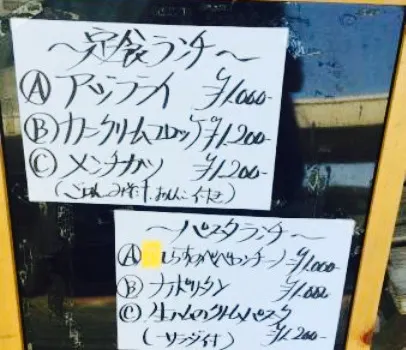 ～定食ランチ～
Ⓐ アジフライ ¥1.000-
Ⓑ カニクリームコロッケ ¥1.200-
Ⓒ メンチカツ ¥1.200-
(ごはん、みそ汁、おしんこ付き)
～パスタランチ～
Ⓐ しらすのペペロンチーノ ¥1.000-
Ⓑ ナポリタン ¥1.000
Ⓒ 生ハムのクリームパスタ
(サラダ付) ¥1.200-